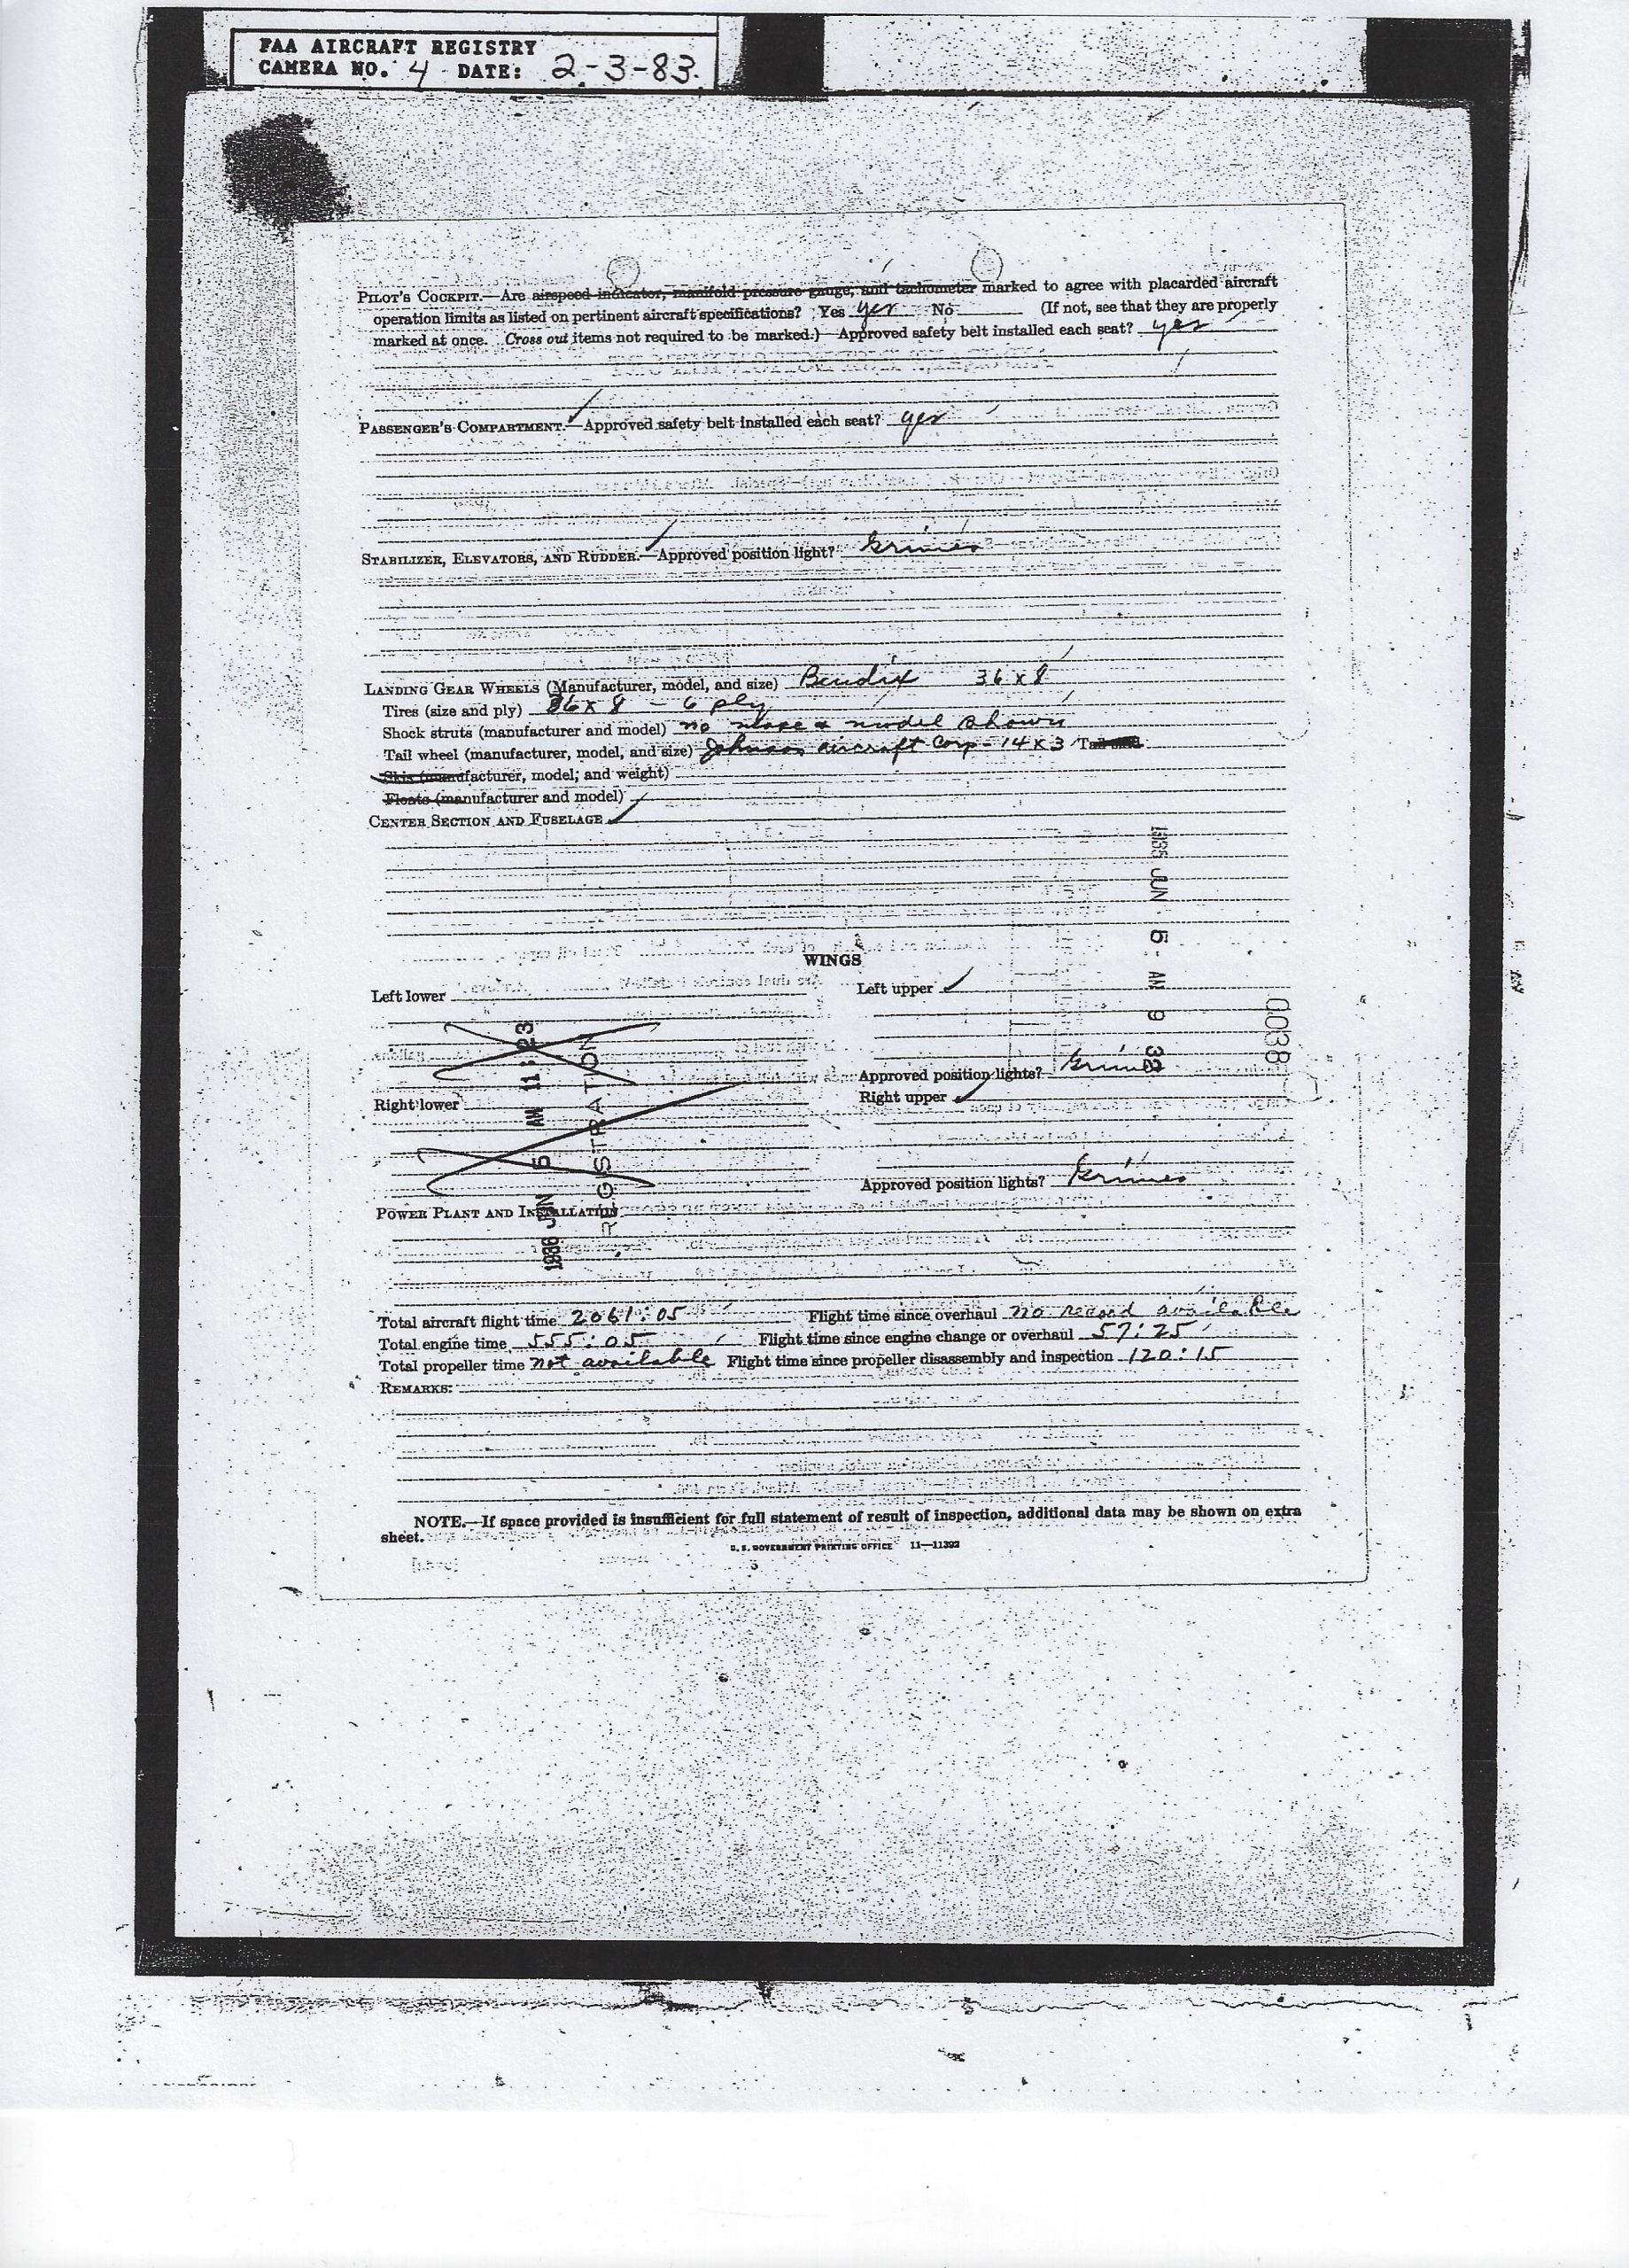 FAA AIRCRAFT REGISTRY
CAMERA NO. 4 DATE: 2-3-83
PILOT'S COCKPIT.—Are airspeed indicator, manifold pressure gauge, and tachometer marked to agree with placarded aircraft
operation limits as listed on pertinent aircraft specifications? Yes yes No (If not, see that they are properly
marked at once. Cross out items not required to be marked.)—Approved safety belt installed each seat? yes
PASSENGER'S COMPARTMENT.—Approved safety belt installed each seat? yes
STABILIZER, ELEVATORS, AND RUDDER.—Approved position light? Grimes
LANDING GEAR WHEELS (Manufacturer, model, and size) Bendix 36 x 8
Tires (size and ply) 36 x 8 - 6 ply
Shock struts (manufacturer and model) no name & model shown
Tail wheel (manufacturer, model, and size) Johnson aircraft Corp - 14 x 3
Skis (manufacturer, model, and weight)
Floats (manufacturer and model)
CENTER SECTION AND FUSELAGE
1936 JUN 5 AM 9 32
0038
WINGS
Left lower Left upper
Approved position lights? Grimes
Right lower Right upper
Approved position lights? Grimes
1936 JUN 5 AM 11:23
REGISTRATION
POWER PLANT AND INSTALLATION
Total aircraft flight time 2061:05 Flight time since overhaul no record available
Total engine time 555:05 Flight time since engine change or overhaul 57:25
Total propeller time not available Flight time since propeller disassembly and inspection 120:15
REMARKS:
NOTE.—If space provided is insufficient for full statement of result of inspection, additional data may be shown on extra
sheet.
U. S. GOVERNMENT PRINTING OFFICE 11—11393